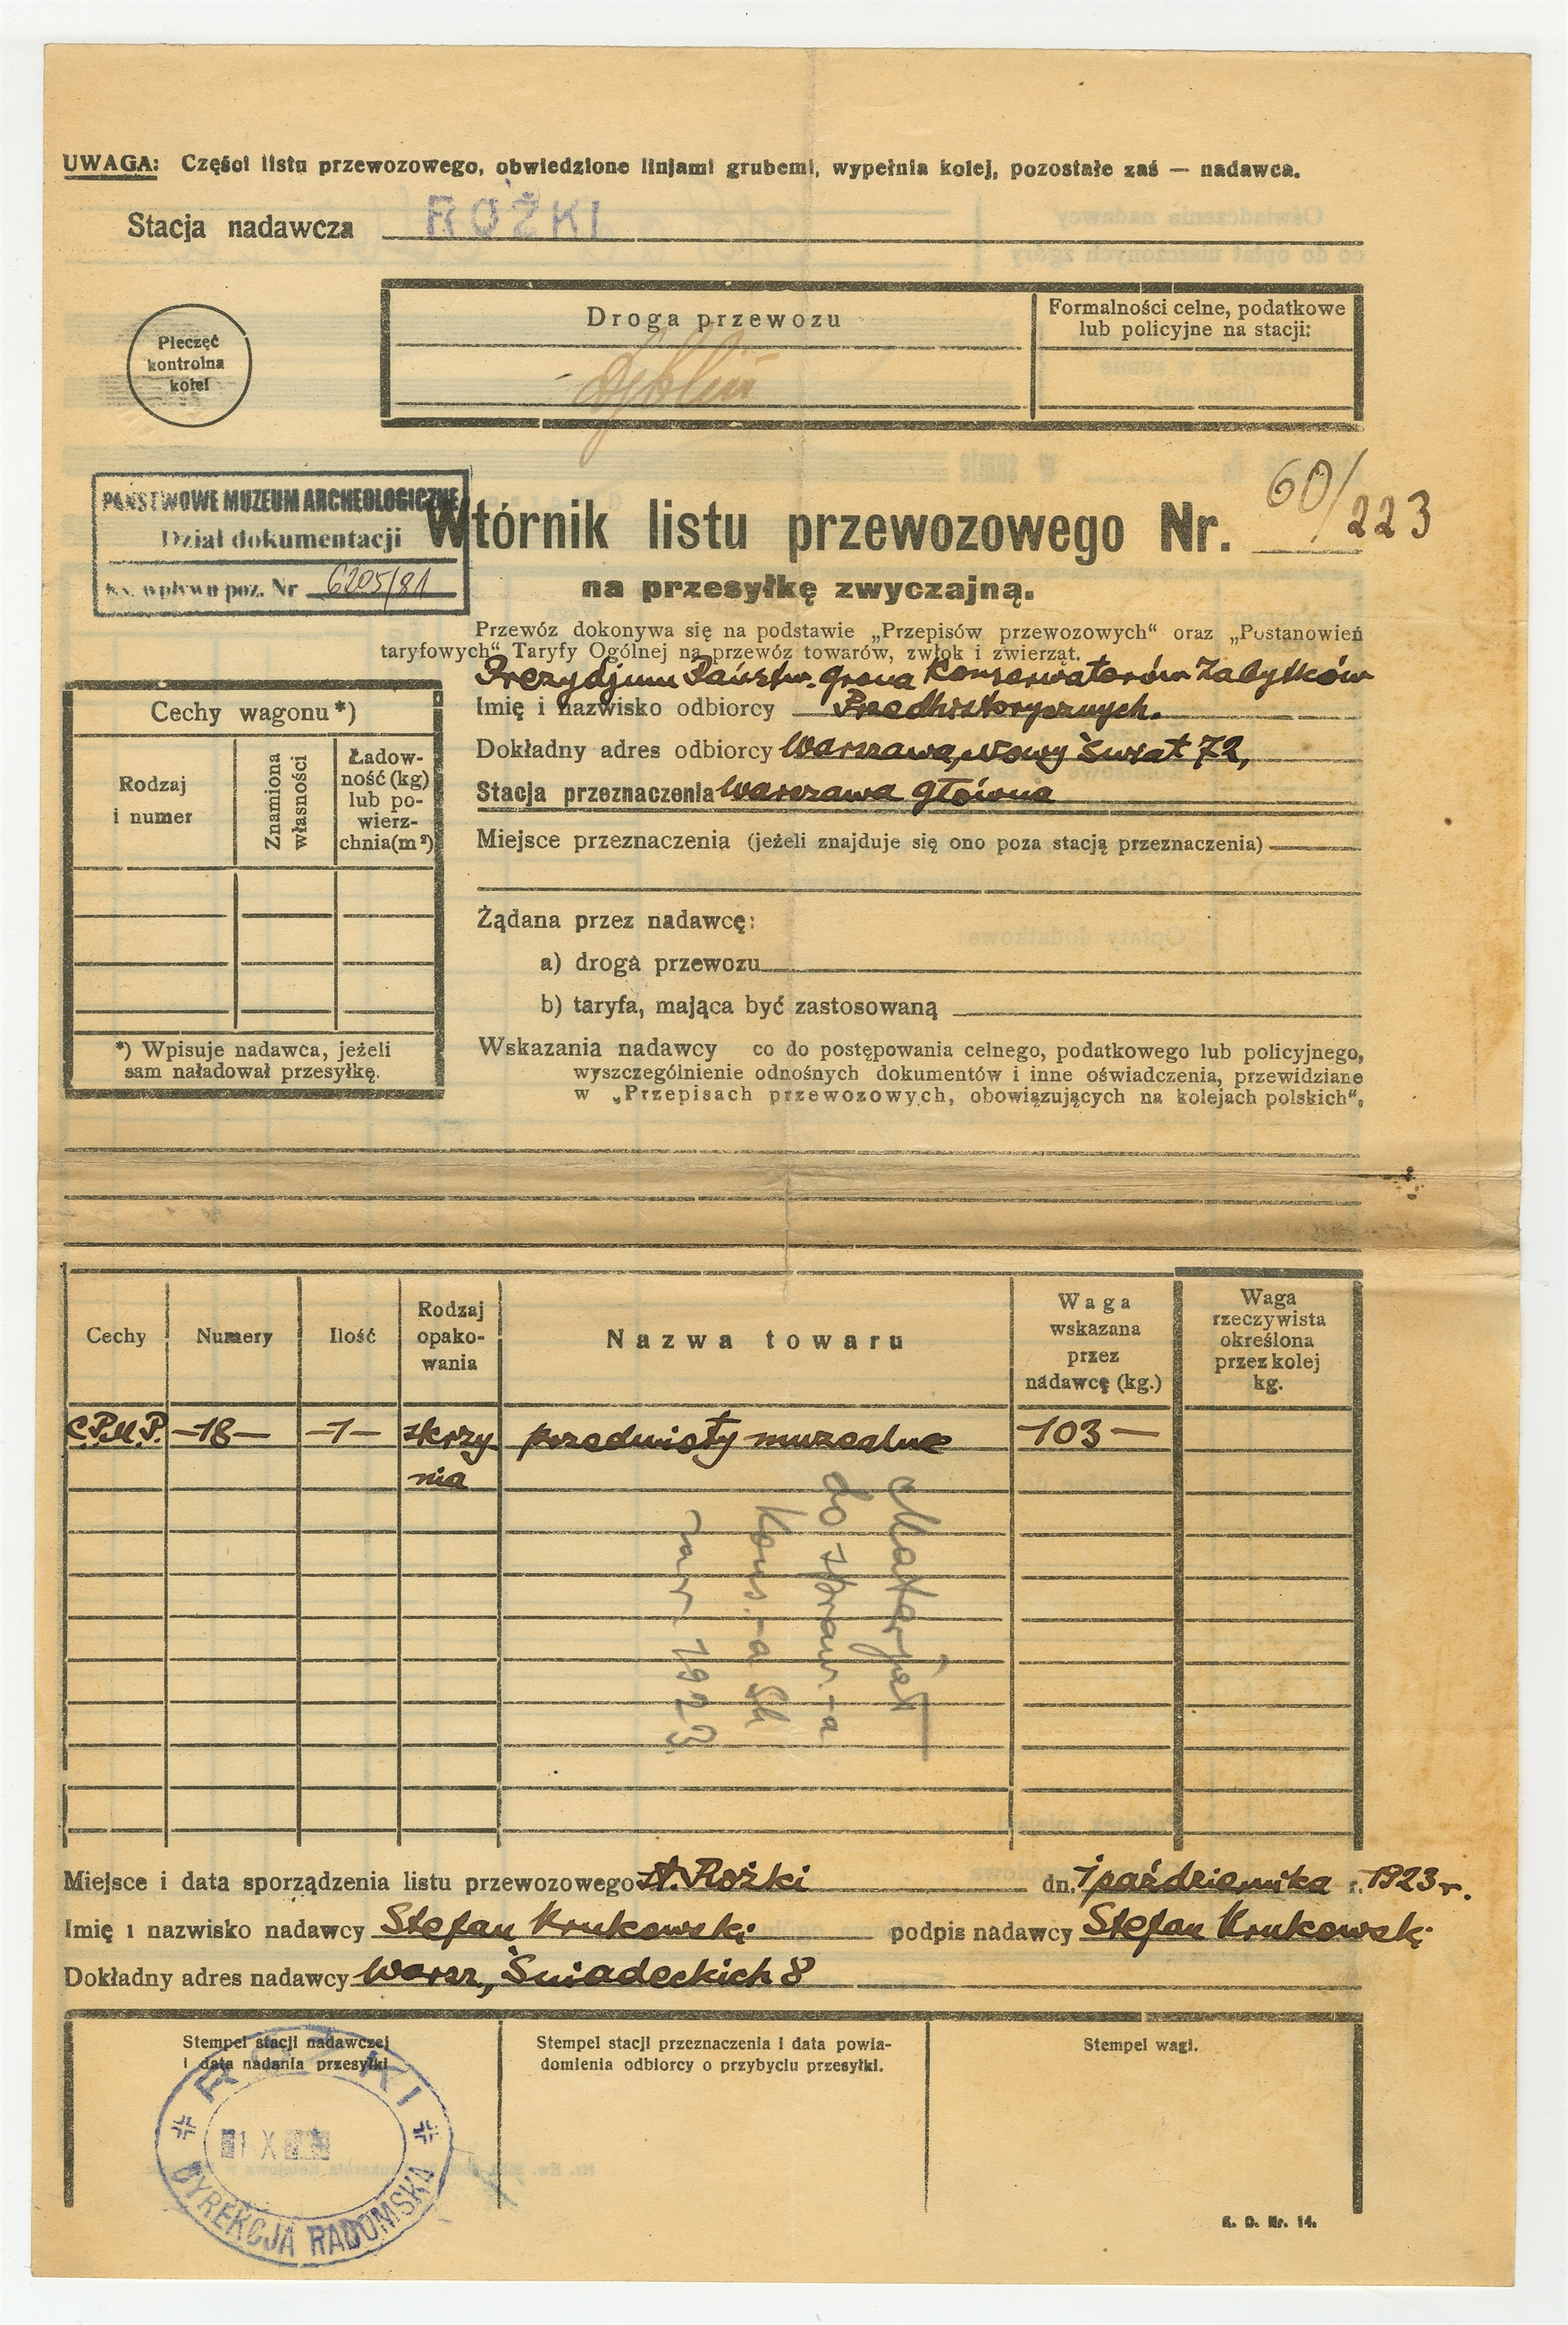 UWAGA: Części listu przewozowego, obwiedzione linjami grubemi, wypełnia kolej, pozostałe zaś — nadawca.
Stacja nadawcza ROŻKI
Pieczęć
kontrolna
kolei
Droga przewozu
Formalności celne, podatkowe
lub policyjne na stacji:
PAŃSTWOWE MUZEUM ARCHEOLOGICZNE
Dział dokumentacji
Ks. wpływu poz. Nr 6205/81
Wtórnik listu przewozowego Nr. 60/223
na przesyłkę zwyczajną.
Przewóz dokonywa się na podstawie „Przepisów przewozowych“ oraz „Postanowień
taryfowych“ Taryfy Ogólnej na przewóz towarów, zwłok i zwierząt.
Prezydjum Państw. Grona Konserwatorów Zabytków
Imię i nazwisko odbiorcy Przedhistorycznych.
Dokładny adres odbiorcy Warszawa, Nowy Świat 72,
Stacja przeznaczenia Warszawa główna
Miejsce przeznaczenia (jeżeli znajduje się ono poza stacją przeznaczenia)
Żądana przez nadawcę:
a) droga przewozu
b) taryfa, mająca być zastosowaną
Wskazania nadawcy co do postępowania celnego, podatkowego lub policyjnego,
wyszczególnienie odnośnych dokumentów i inne oświadczenia, przewidziane
w „Przepisach przewozowych, obowiązujących na kolejach polskich“.
Cechy wagonu*)
Rodzaj
i numer
Znamiona
własności
Ładow-
ność (kg)
lub po-
wierz-
chnia(m²)
*) Wpisuje nadawca, jeżeli
sam naładował przesyłkę.
Cechy
Numery
Ilość
Rodzaj
opako-
wania
Nazwa towaru
Waga
wskazana
przez
nadawcę (kg.)
Waga
rzeczywista
określona
przez kolej
kg.
C.P.M.P. —18— —1— skrzy przedmioty muzealne —103—
nia
Materjał
do spraw.-a
Kons.-a
1923.
Miejsce i data sporządzenia listu przewozowego st. Rożki dn. 1 października r. 1923 r.
Imię i nazwisko nadawcy Stefan Krukowski podpis nadawcy Stefan Krukowski
Dokładny adres nadawcy Warsz., Śniadeckich 8
Stempel stacji nadawczej
i data nadania przesyłki
Stempel stacji przeznaczenia i data powia-
domienia odbiorcy o przybyciu przesyłki.
Stempel wagi.
ROŻKI
X
DYREKCJA RADOMSKA
K. D. Nr. 14.